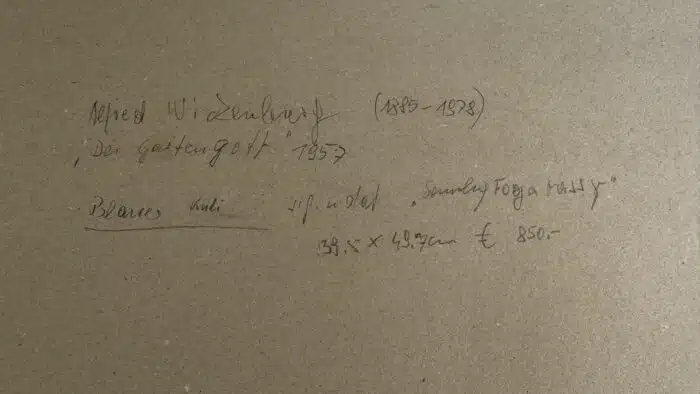 Alfred Wickenburg (1885-1978)
„Der Gartengott" 1957
Blauer Kuli sign. u dat „Sammlung Fogarassy"
39.5 x 49.7cm € 850.-